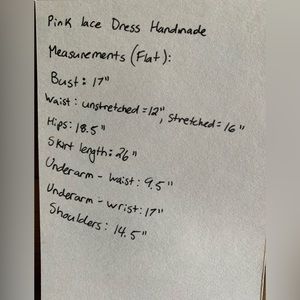 Pink lace Dress Handmade
Measurements (Flat):
Bust: 17"
Waist: unstretched = 12", stretched = 16"
Hips: 18.5"
Skirt length: 26"
Underarm - waist: 9.5"
Underarm - wrist: 17"
Shoulders: 14.5"